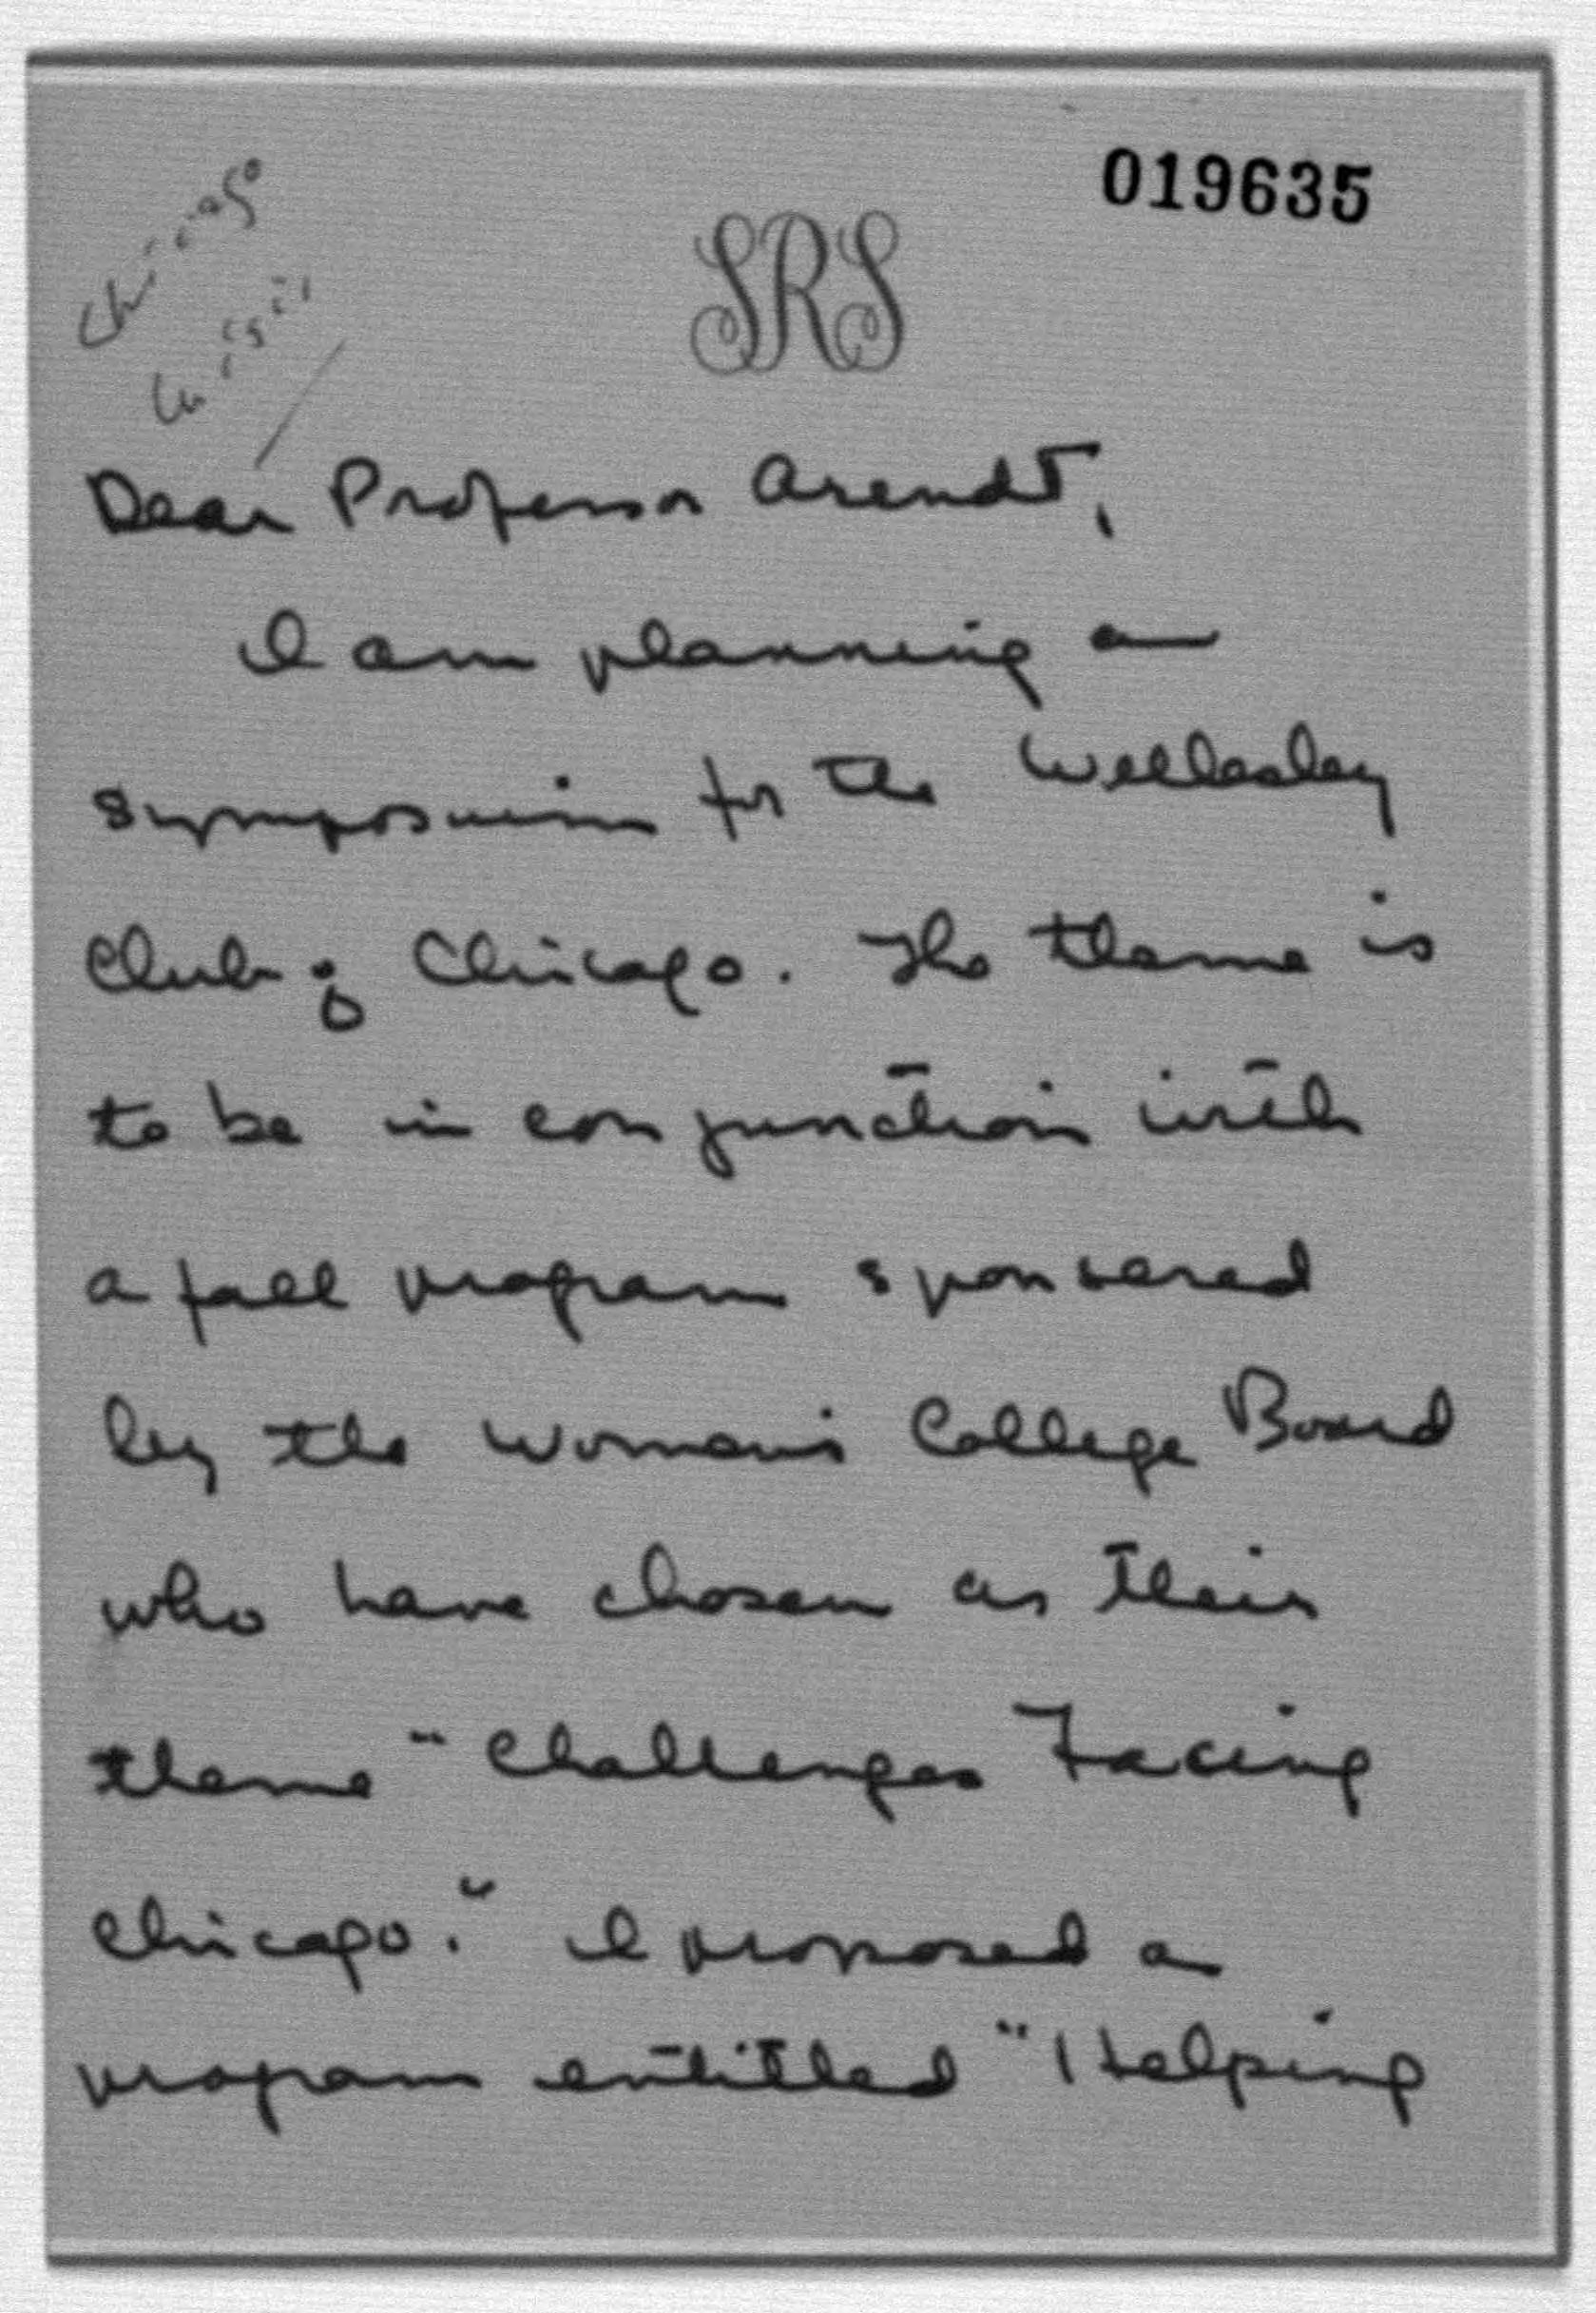 019635
Chicago
SRS
Dear Professor Arendt,
I am planning a
symposium for the Wellesley
Club of Chicago. The theme is
to be in conjunction with
a fall program sponsered
by the Women's College Board
who have chosen as their
theme "Challenges Facing
Chicago." I proposed a
program entitled "Helping